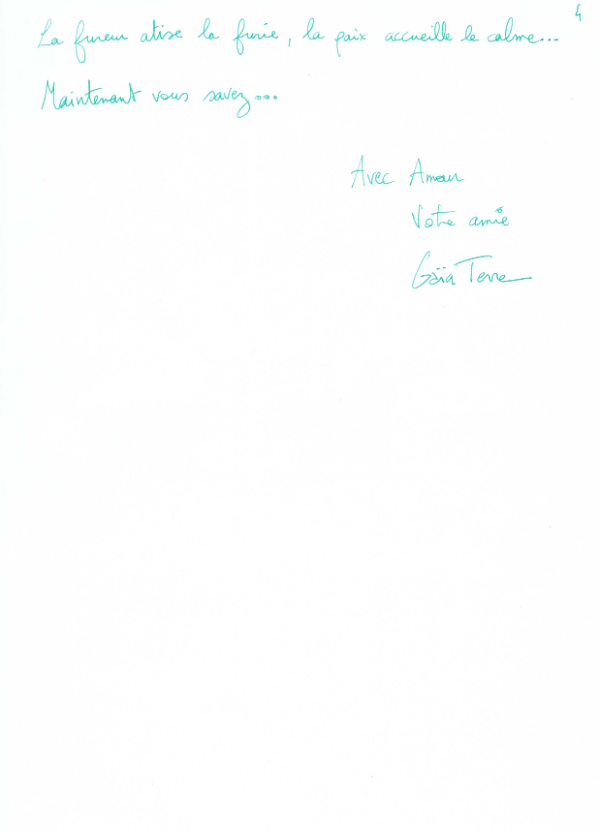 4
La fureur attise la furie, la paix accueille le calme...
Maintenant vous savez...
Avec Amour
Votre amie
Gaïa Terre